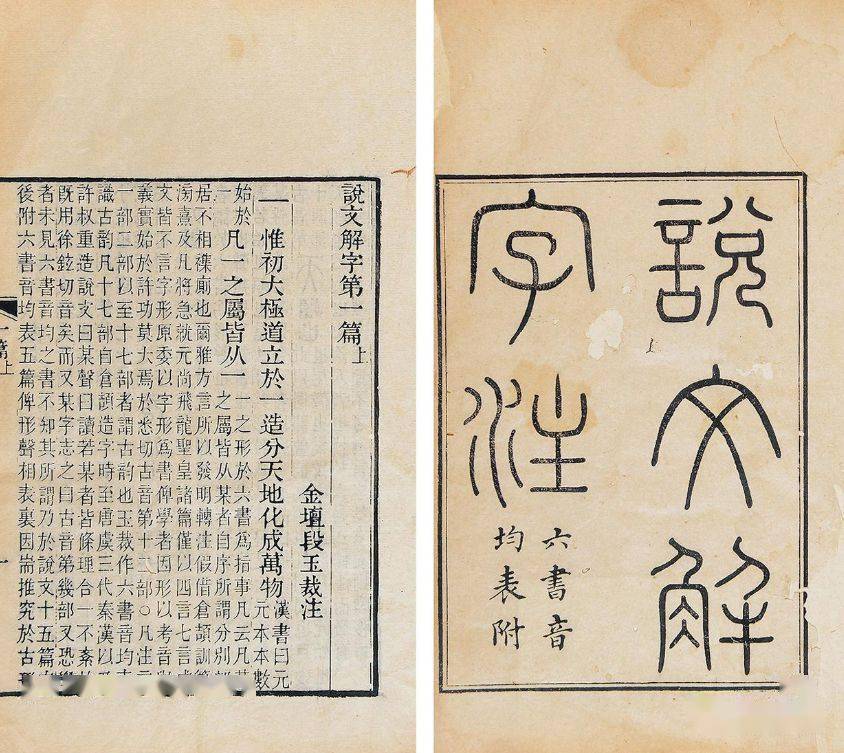 說文解
字注
六書音
均表附
說文解字第一篇上
金壇段玉裁注
一 惟初大極道立於一造分天地化成萬物 漢書曰元元本本數
始於一 凡一之屬皆从一 一之形於六書爲指事凡云凡
之屬皆从某者自序所謂分別部
居不相襍廁也爾雅方言所以發明轉注假借倉頡訓
滂熹及凡將急就元尚飛龍聖皇諸篇僅以四言七言
文皆不言字形原委以字形爲書俾學者因形以考音
義實始於許功莫大焉於悉切古音第十二部○凡注
一部二部以至十七部者謂古韵也玉裁作六書音均
識古韵凡十七部自倉頡造字時至唐虞三代秦漢以
許叔重造說文曰某聲曰讀若某者皆條理合一不紊
既用徐鉉切音矣而又某字志之曰古音第幾部又恐
者未見六書音均之書不知其所謂乃於說文十五篇
後附六書音均表五篇俾形聲相表裏因耑推究於古
一篇上
一